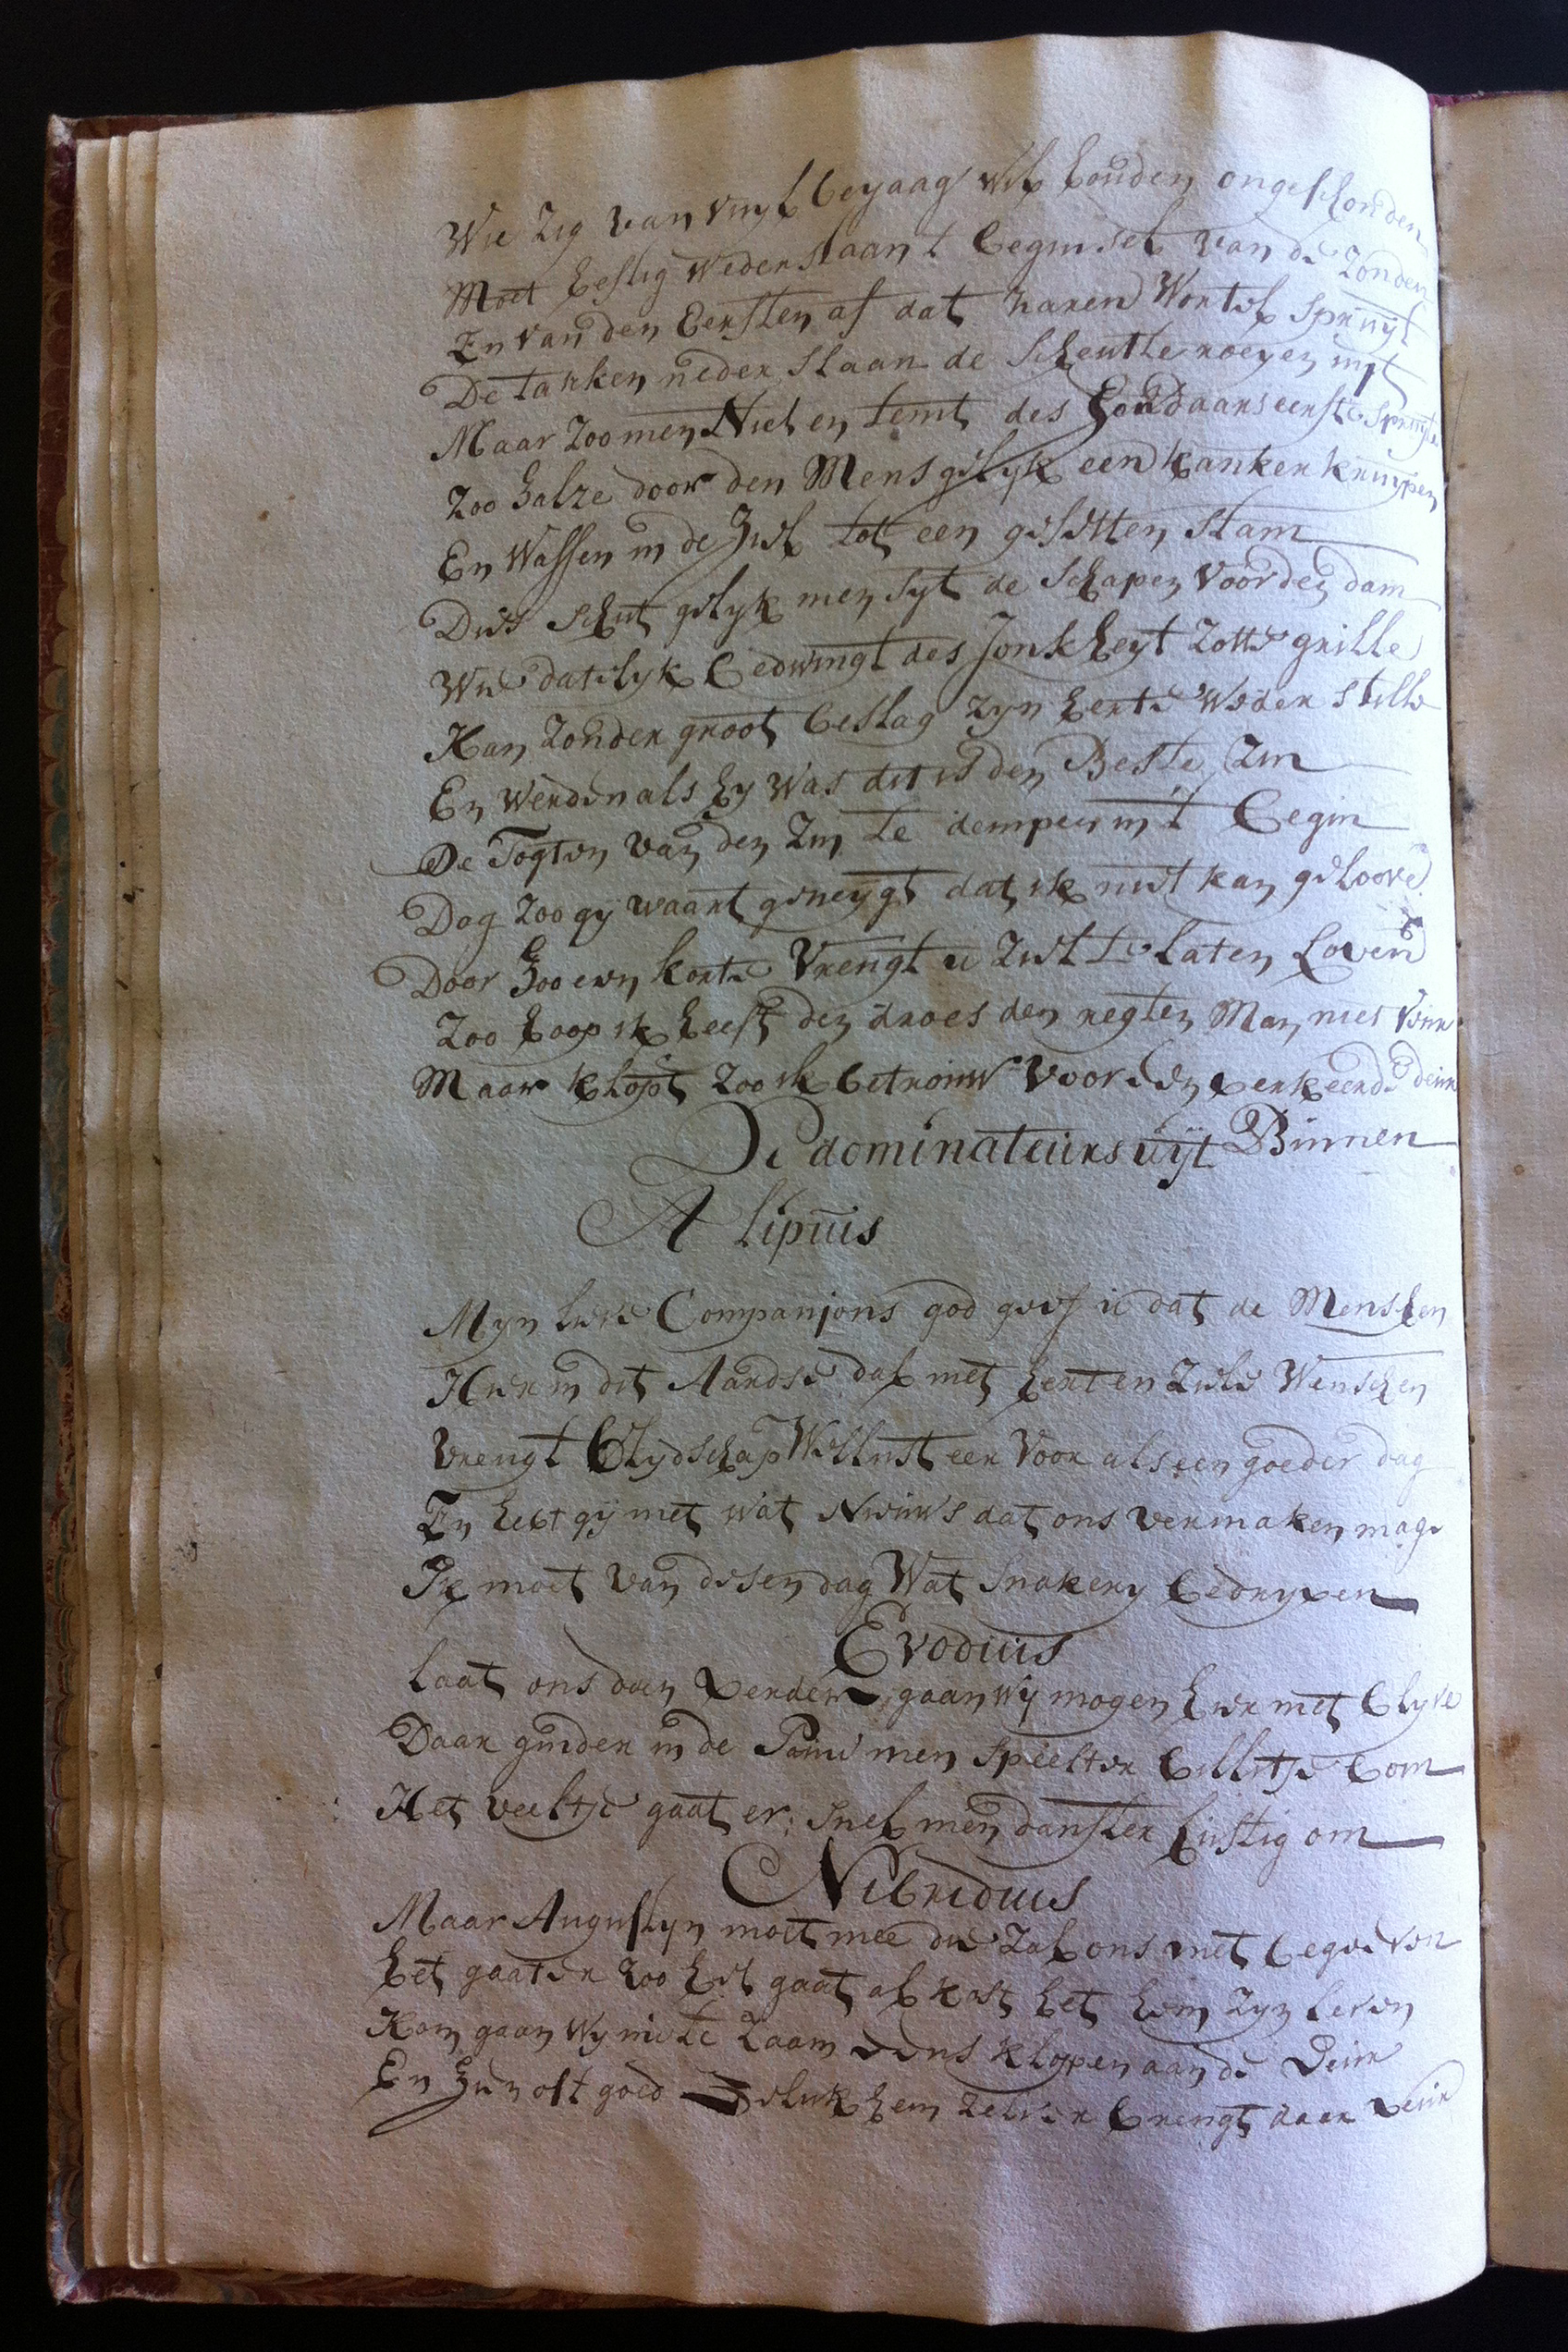 Wie zig van vuyl bejaag wil houden ongeschonden
Moet hestig wederstaan t beginsel van de zonden
En van den Eersten af dat haren Wortel spruyt
De tacken neder slaan de scheutte roeyen uyt
Maar zoo men Niet en temt des zondaars eerste spruyten
Zoo zalze door den Mens gelyk een kanker kruypen
En Wassen in de Ziel tot een gesetten stam
Dus schut gelyk men syt de schapen voor den dam
Wie datelyk bedwingt des Jonkheyt zotte grille
Kan zonder groot beslag zyn herte weder stille
En werden als hy was dit is den Beste zin
De Togten van den zin te dempen in t begin
Dog zoo gy waart geneygt dat ik niet kan geloove
Door zoo een korte vreugt u ziel te laten Roven
Zoo hoop ik heeft den droes den regten Man niet veur
Maar klopt zoo ik betrouw voor den verkeerde deur
De dominateurs uijt Binnen
Alipius
Myn lieve Companjons god geef u dat de Menschen
Hier in dit Aardse dal met hert en ziele Wenschen
Vreugt blydschap Wellust eer voor al een goeder dag
En hebt gy niet wat Nieuws dat ons vermaken mag
Ik moet van desen dag Wat snakery bedryven
Evodius
Laat ons dan verder gaan wij mogen hier niet blyve
Daar ginder in de men speelter billetje bom
Het veeltje gaat er snel men danster lustig om
Nibridius
Maar Augustyn moet mee die zal ons niet begeeven
het gaat er zoo het gaat al kost het hem zyn leven
Kom gaan wy nu te zaam eens kloppen aan de deur
En zien oft goed geluk hem zelver brengt daar veur